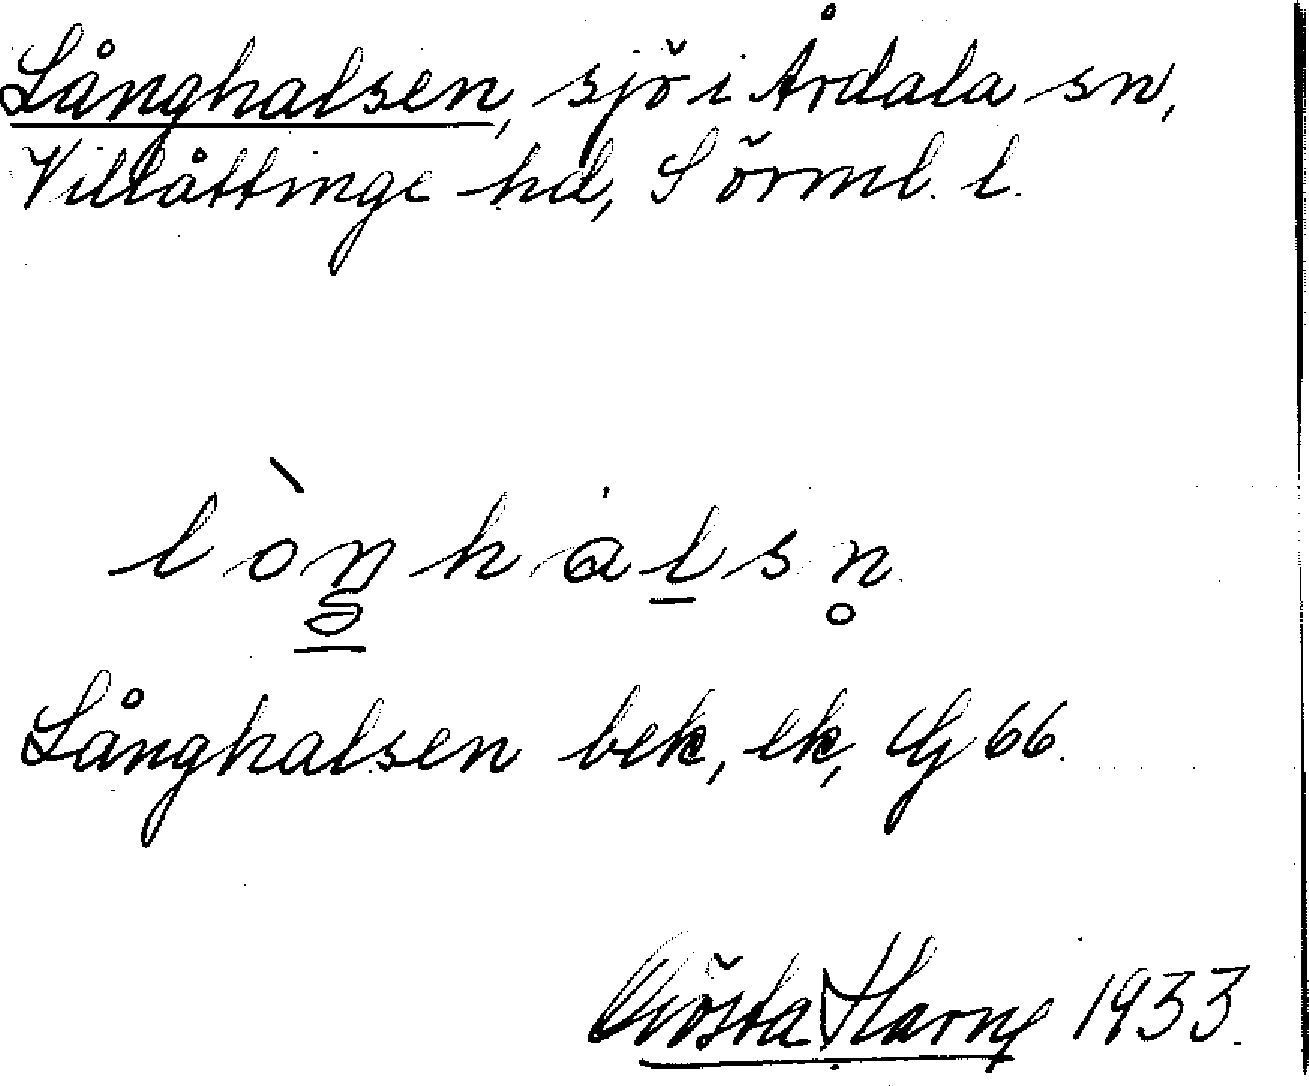 Långhalsen, sjö i Årdala sn,
Villåttinge hd, Sörml. l.
lòŋhalsn̥
Långhalsen bek, ek, G 66.
Gösta Harne 1933.